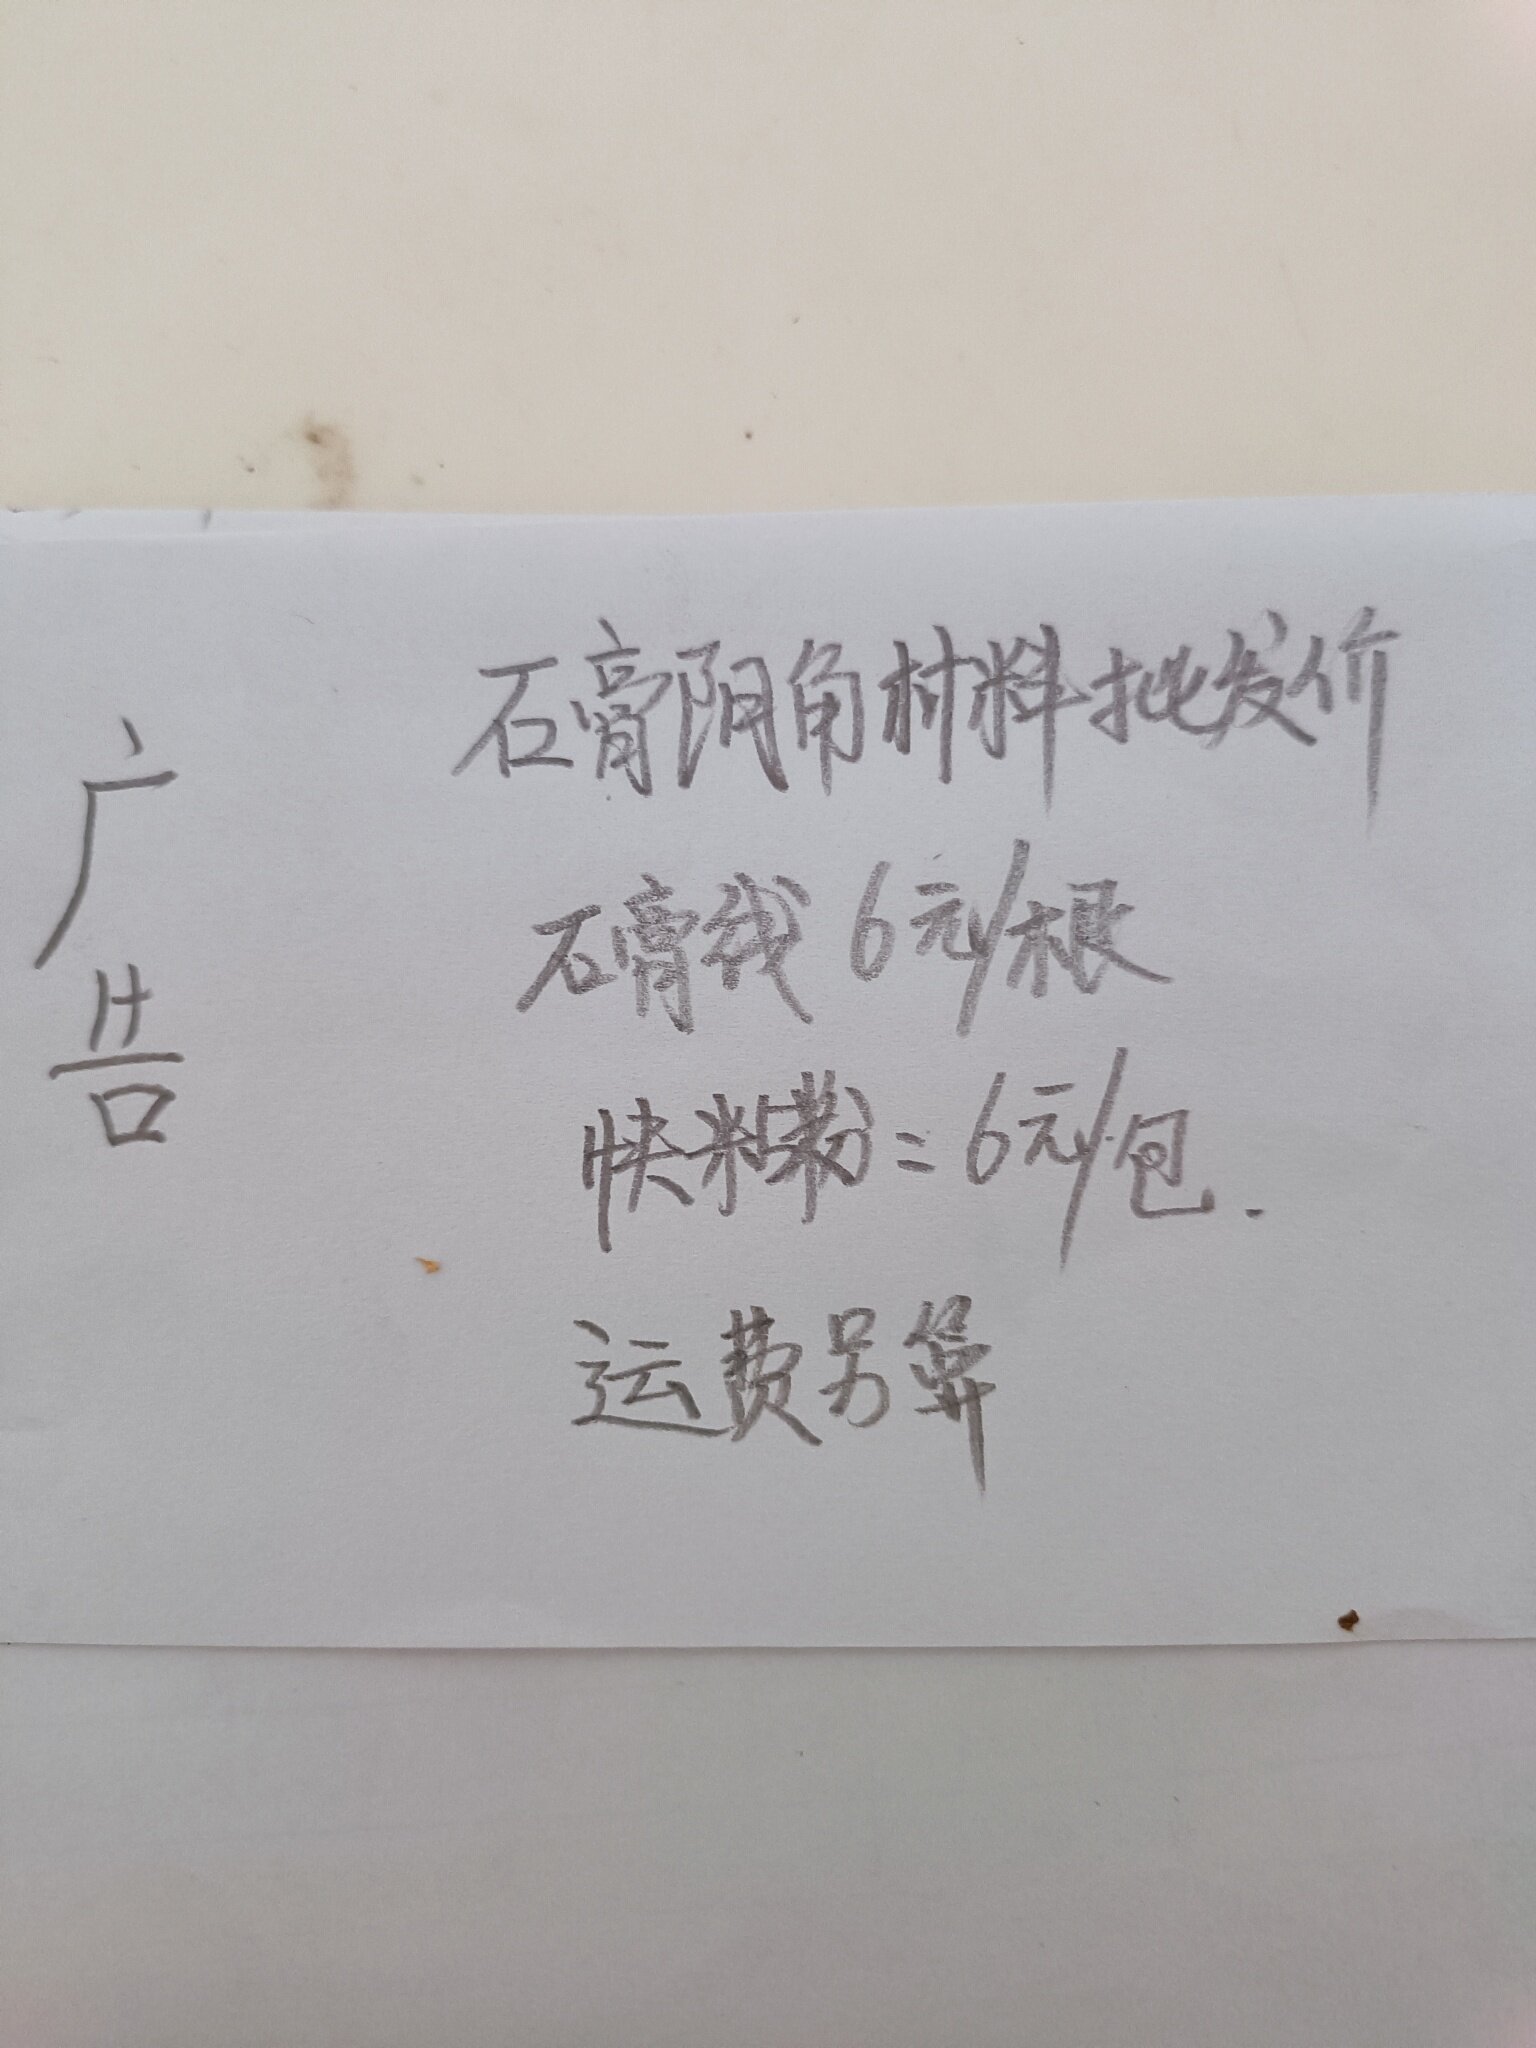 广告
石膏阴角材料批发价
石膏线6元/根
快粘粉=6元/包.
运费另算